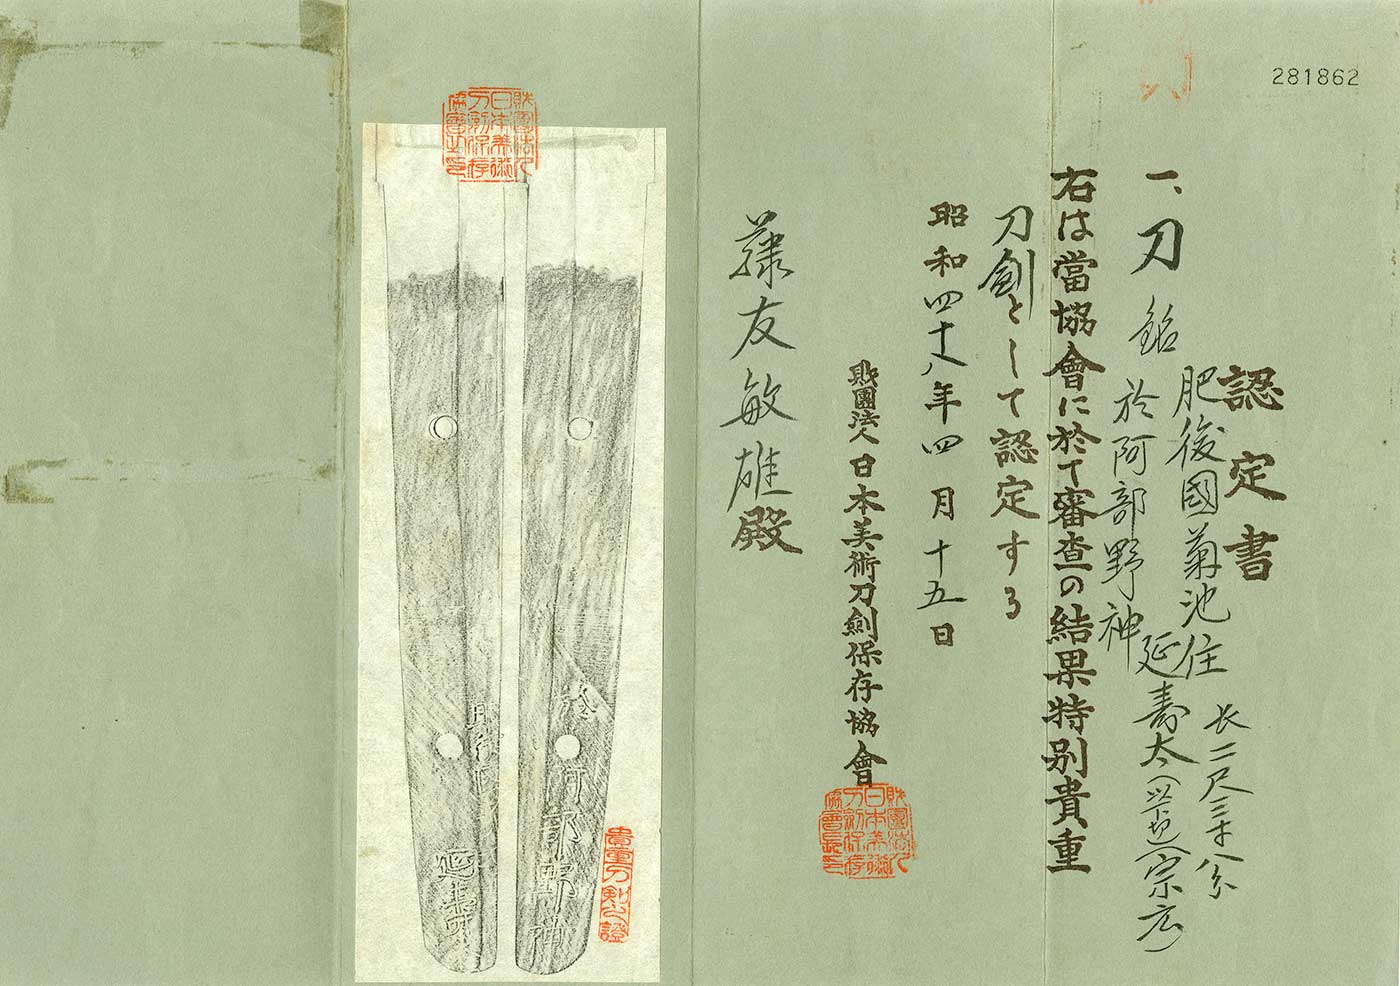 281862
認定書
一、刀 銘 肥後國菊池住延壽太(以下切)(宗広)
於阿部野神
長二尺三寸八分
右は當協會に於て審査の結果特別貴重
刀劍として認定する
昭和四十八年四月十五日
財團法人日本美術刀劍保存協會
財團法人日本美術刀剣保存協會長之印
藤友敏雄殿
財團法人日本美術刀剣保存協會之印
於阿部野神
貴重刀剣之證